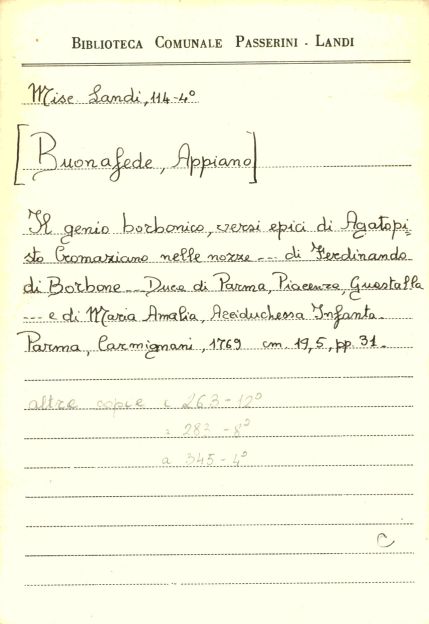 BIBLIOTECA COMUNALE PASSERINI - LANDI
Misc Landi, 114-4º
[Buonafede, Appiano]
Il genio borbonico, versi epici di Agatopi=
sto Cromaziano nelle nozze --- di Ferdinando
di Borbone --- Duca di Parma, Piacenza, Guastalla
--- e di Maria Amalia, Arciduchessa Infanta.
Parma, Carmignani, 1769 cm. 19,5, pp. 31.
altre copie : 263-12º
: 283-8º
a 345-4º
C